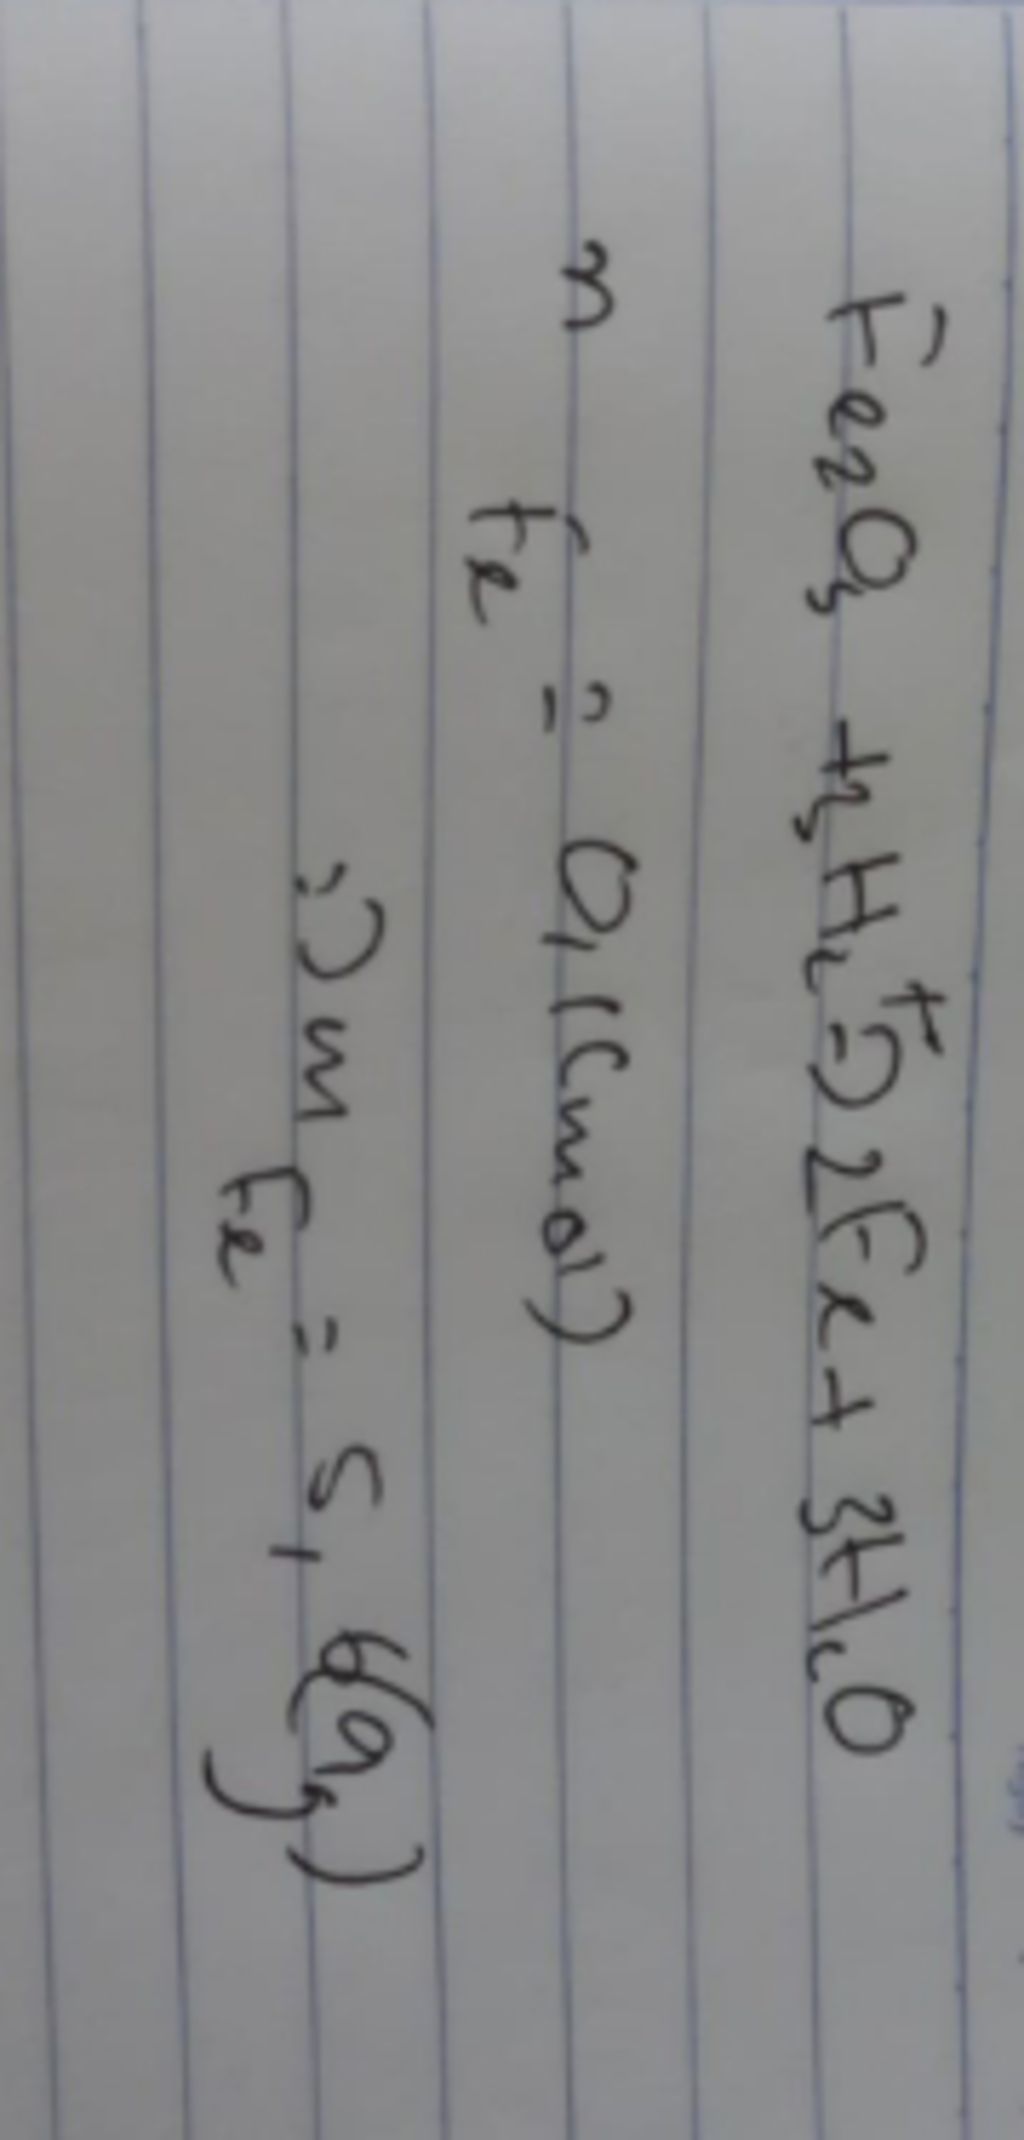 Fe2O3 + 3H2 t°=> 2Fe + 3H2O
n Fe = 0,1(mol)
=> m Fe = 5,6(g)